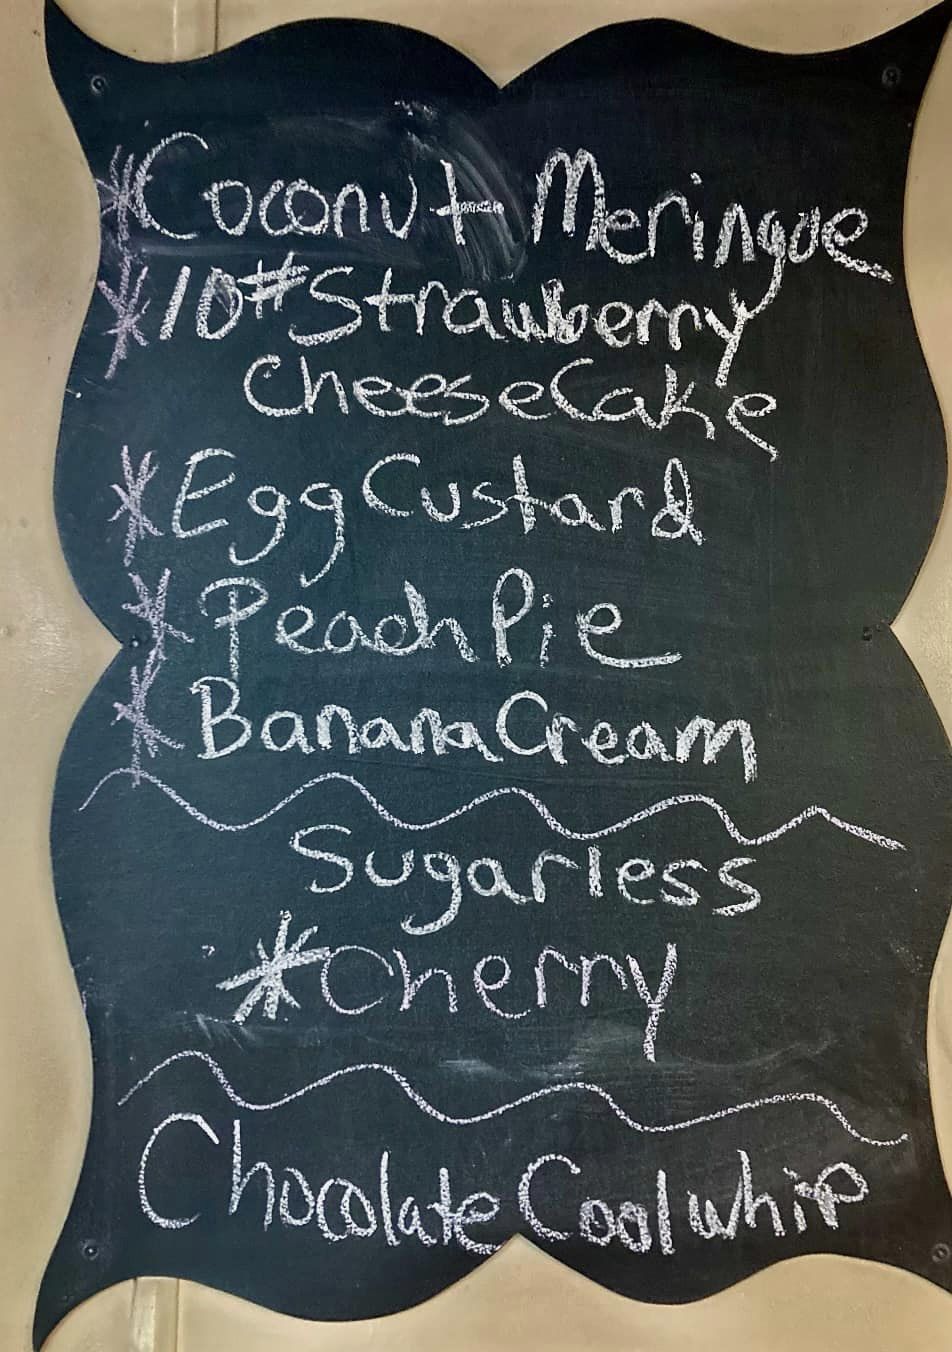 *Coconut Meringue
*10# Strawberry
CheeseCake
*Egg Custard
*Peach Pie
*Banana Cream
Sugarless
*Cherry
Chocolate Cool whip